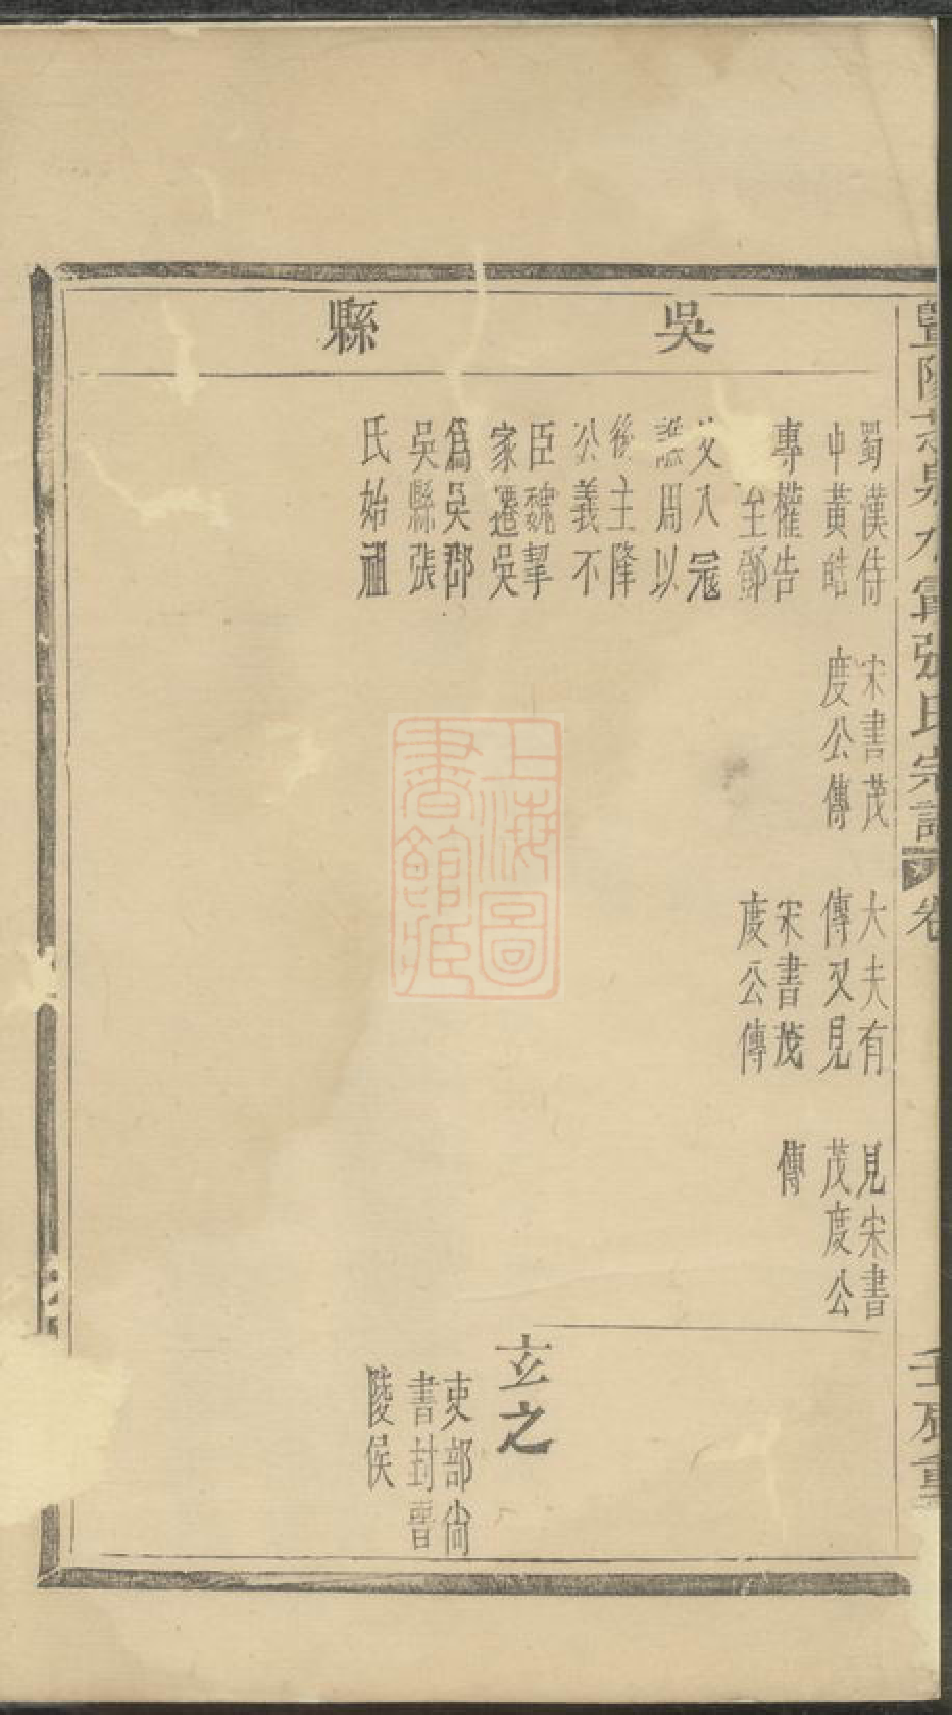 暨陽
氏宗譜
卷
吳
縣
蜀漢侍
中黃皓
專權告
至鄧
艾入寇
譙周以
後主降
公義不
臣魏挈
家遷吳
爲吳郡
吳縣張
氏始祖
宋書茂
度公傳
大夫有
傳又見
宋書茂
度公傳
見宋書
茂度公
傳
玄之
吏部尚
書封晋
陵侯
上海圖
書館藏